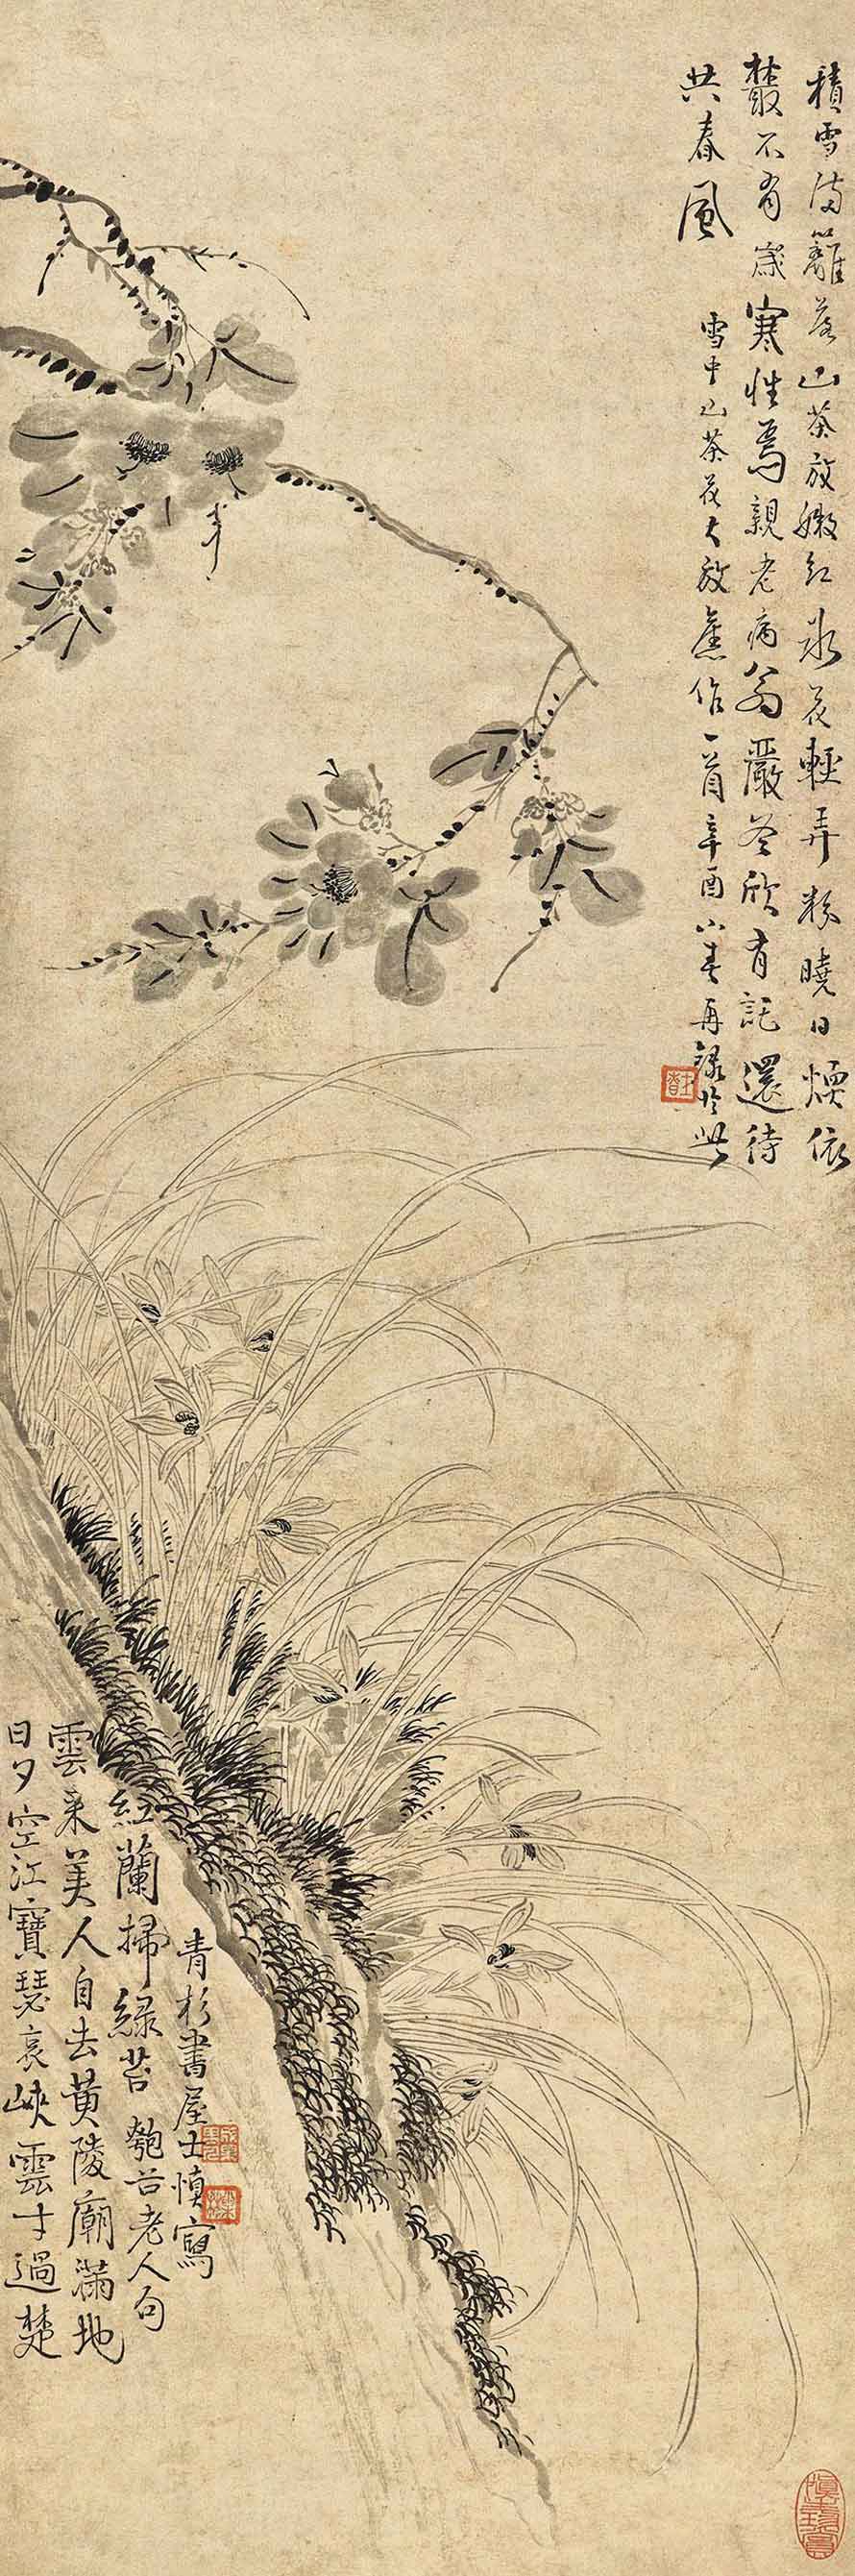 積雪滿籬落山茶放嫩紅氷花輕弄粉曉日煖依
叢不有歲寒性焉親老病翁嚴冬欣有託還待
共春風
雪中山茶花大放舊作一首辛酉小春再録於此
日夕空江寶瑟哀峽雲才過楚
雲來美人自去黃陵廟滿地
紅蘭掃綠苔 匏谷老人句
青杉書屋士慎寫